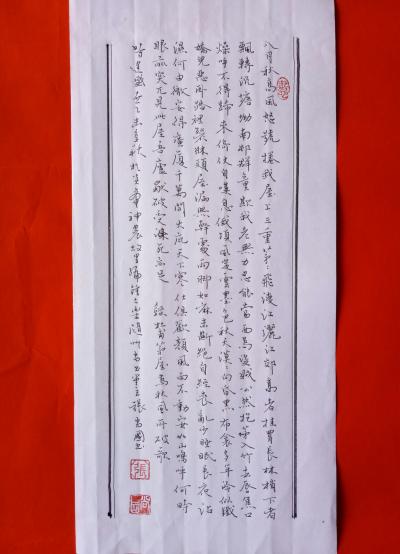 八月秋高風怒號捲我屋上三重茅茅飛渡江灑江郊高者挂罥長林梢下者
飄轉沉塘坳南邨群童欺我老無力忍能當面為盜賊公然抱茅入竹去唇焦口
燥呼不得歸來倚仗自嘆息俄頃風定雲墨色秋天漠漠向昏黑布衾多年冷似鐵
嬌兒惡臥踏裡裂床頭屋漏無幹處雨腳如麻未斷絕自經喪亂少睡眠長夜沾
濕何由徹安得廣廈千萬間大庇天下寒仕俱歡顏風雨不動安如山嗚呼何時
眼前突兀見此屋吾廬獨破受凍死亦足 錄杜甫茅屋為秋風所破歌
時 秋於 神農故里編鐘之 隨州 張 國書
張